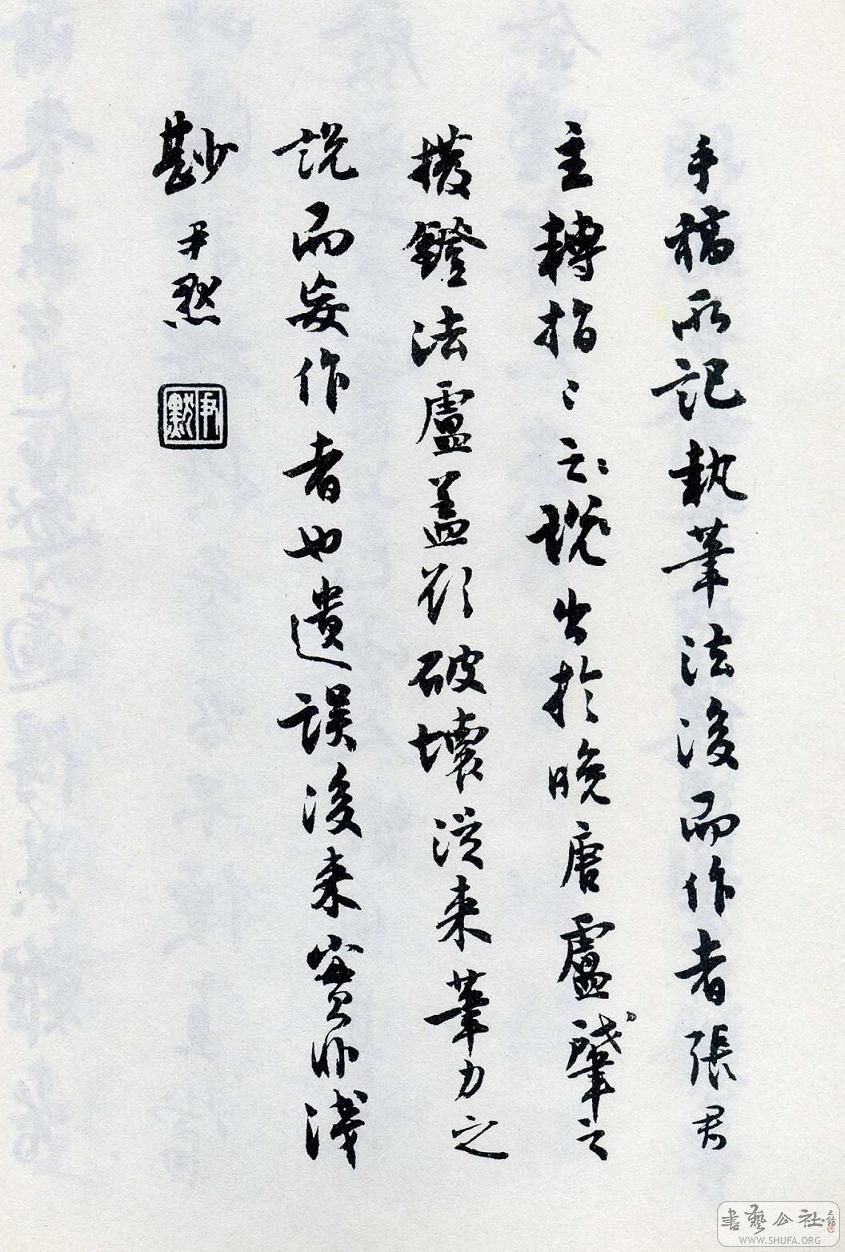 手稿所記執筆法後而作者張君
主轉指〻云〻說出於晚唐盧肇之
撥鐙法盧蓋欲破壞從來筆力之
說而妄作者也遺誤後來實非淺
尠 尹默
尹默
書藝公社
WWW.SHUFA.ORG